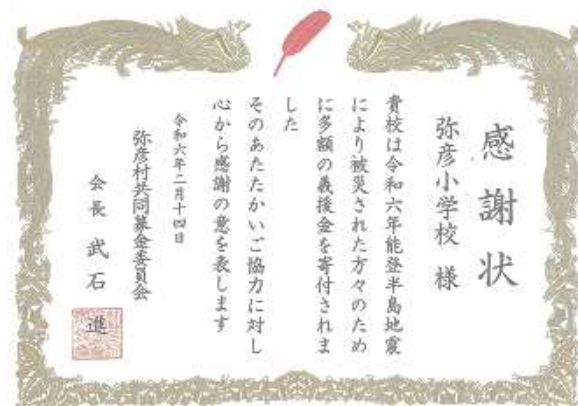 感謝状
弥彦小学校 様
貴校は令和六年能登半島地震
により被災された方々のため
に多額の義援金を寄付されま
した
そのあたたかいご協力に対し
心から感謝の意を表します
令和六年二月十四日
弥彦村共同募金委員会
会長 武石 進